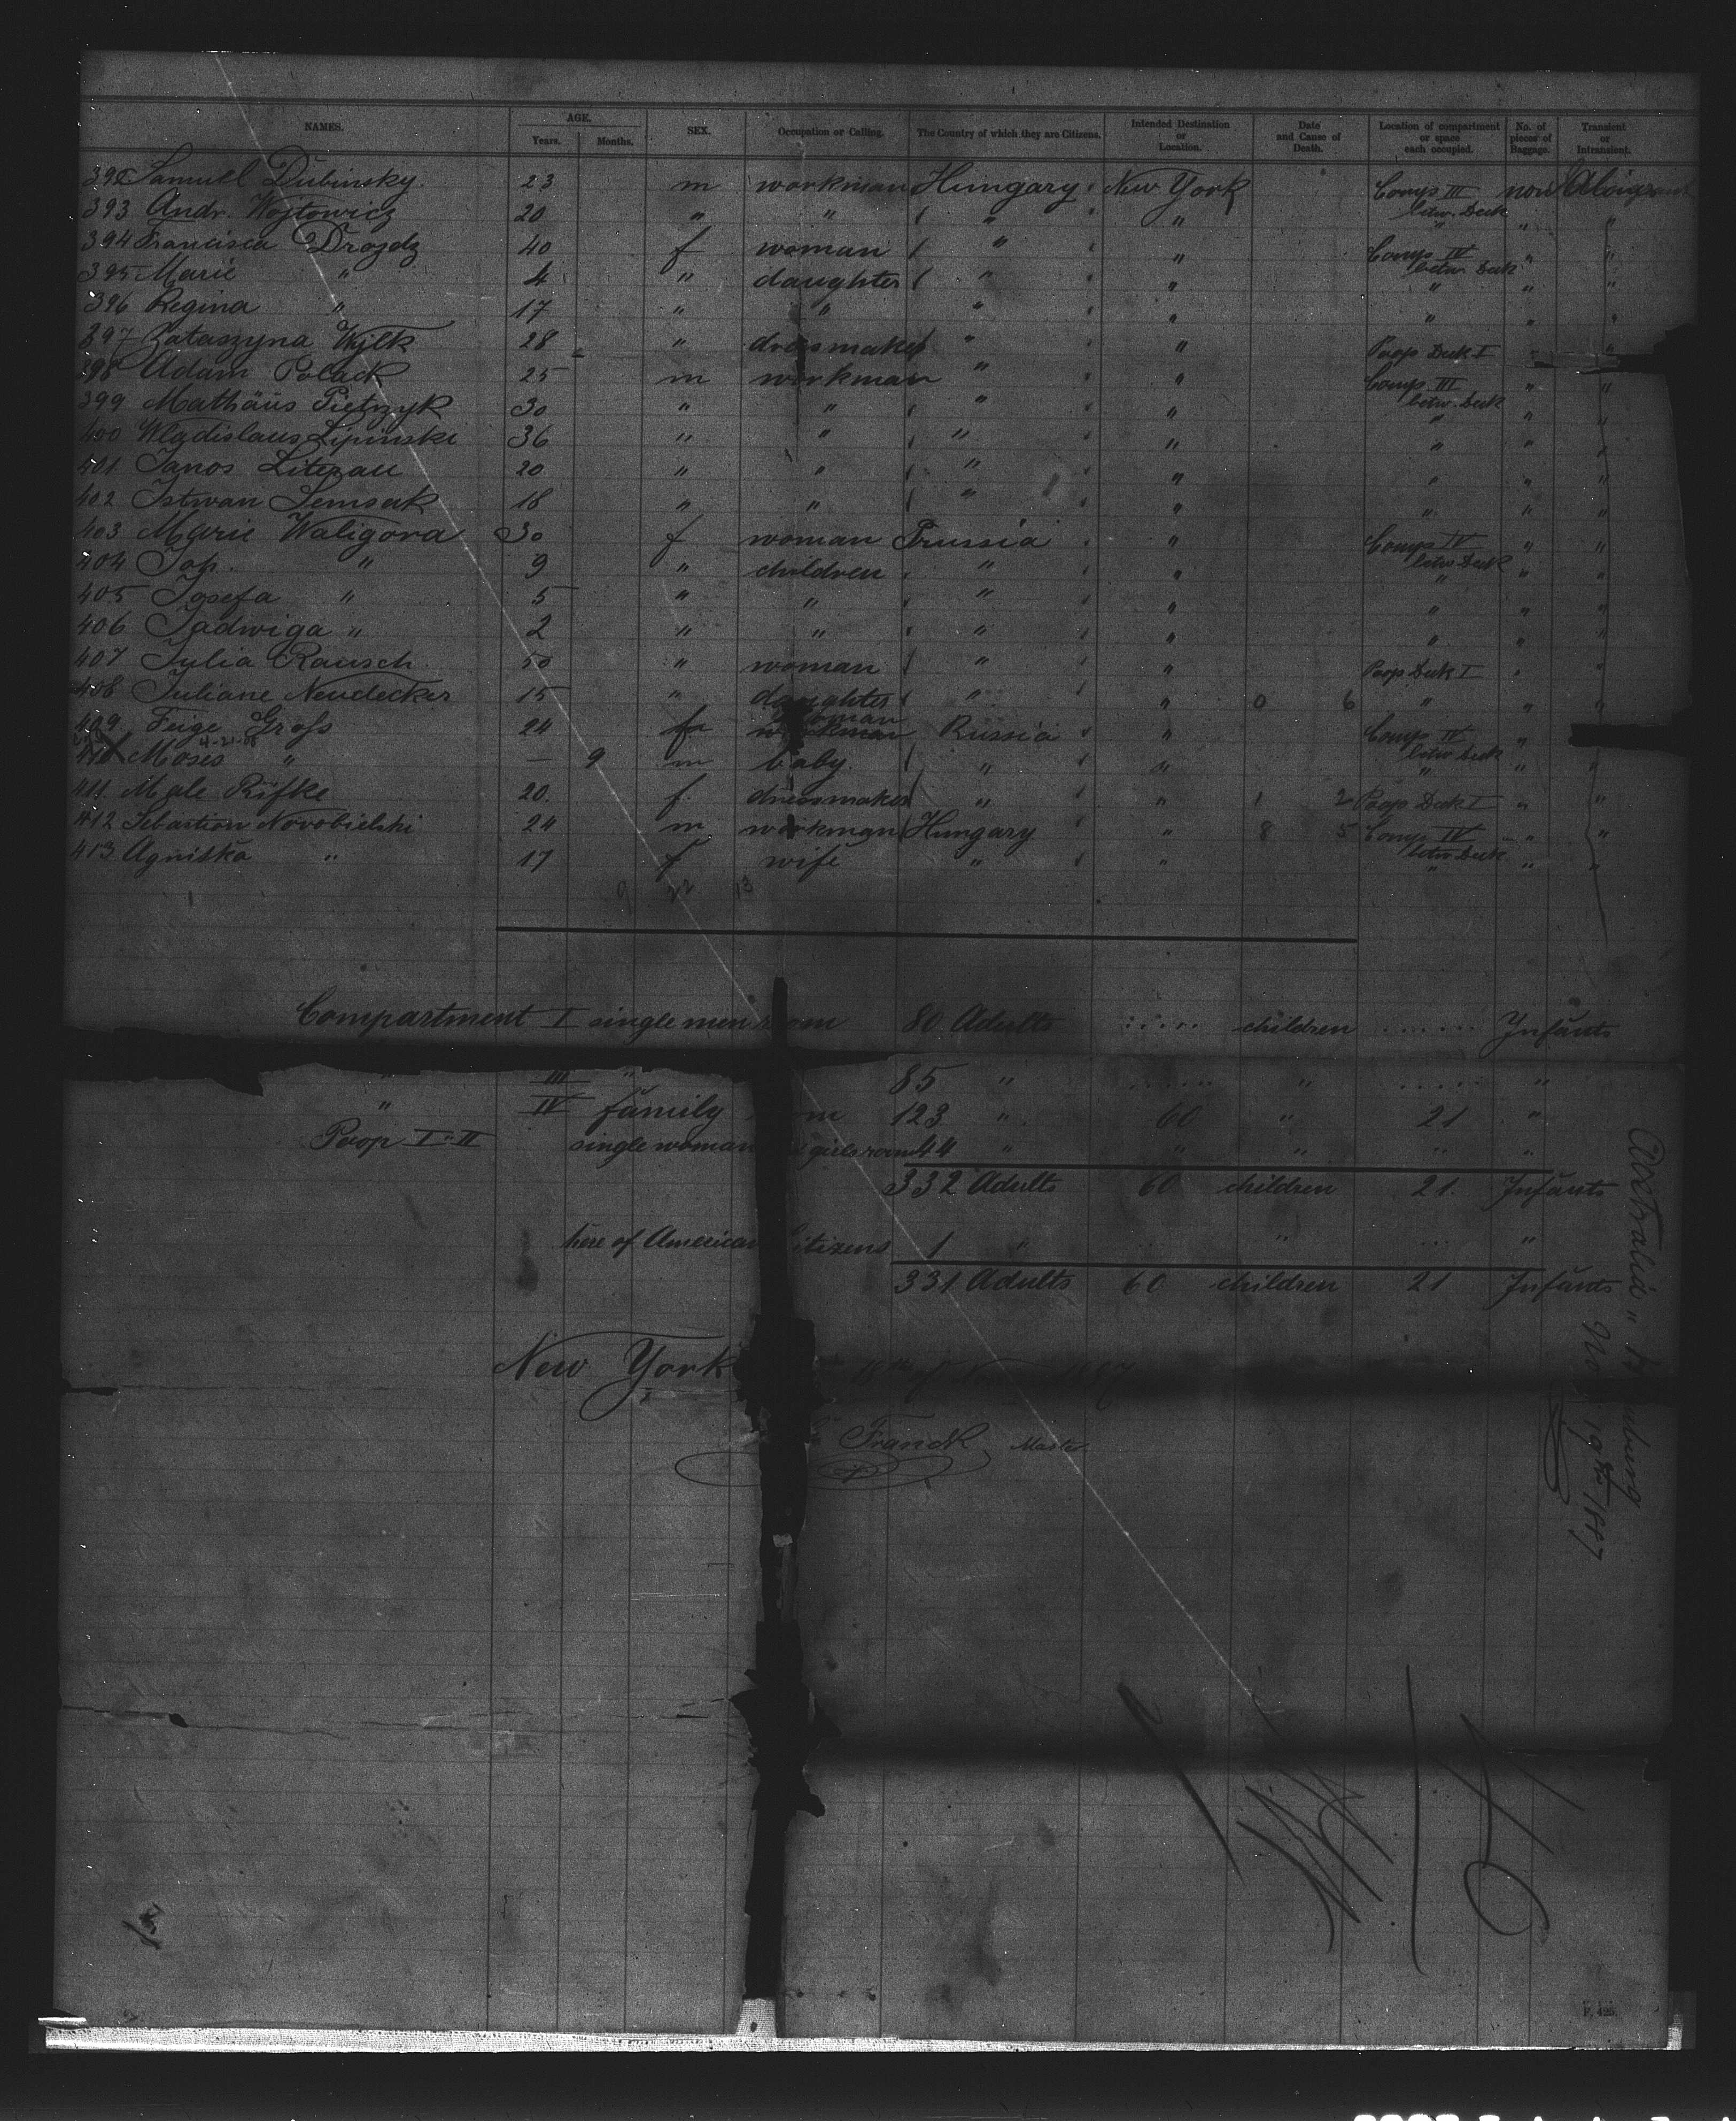 NAMES. AGE. Years. Months. SEX. Occupation or Calling. The Country of which they are Citizens. Intended Destination or Location. Date and Cause of Death. Location of compartment or space each occupied. No. of pieces of Baggage. Transient or Intransient.
392 Samuel Dubinsky. 23 m workman Hungary New York Comp III betw. Deck non
393 Andr. Wojtowicz 20 " " " " " " "
394 Francisca Drozdz 40 f woman " " Comp IV betw. Deck " "
395 Marie " 4 " daughter " " " " "
396 Regina " 17 " " " " " " "
397 Kataszyna Wylk 28 " dressmaker " " Poop Deck I " "
398 Adam Polack 25 m workman " " Comp III betw. Deck " "
399 Mathäus Pietrzyk 30 " " " " " " "
400 Wladislaus Lipinski 36 " " " " " " "
401 Janos Literau 20 " " " " " " "
402 Istwan Semsak 18 " " " " " " "
403 Marie Waligora 30 f woman Prussia " Comp IV betw Deck " "
404 Joh. " 9 " children " " " " "
405 Josefa " 5 " " " " " " "
406 Jadwiga " 2 " " " " " " "
407 Julia Rausch 50 " woman " " Poop Deck I " "
408 Juliane Neudecker 15 " daughter " " 0 6 " " "
409 Feige Gross 24 f woman workman Russia " Comp IV betw Deck "
410 Moses " — 9 m baby. " " " " "
411 Male Rifke 20. f. dressmaker " " 1 2 Poop Deck I " "
412 Sebastian Novobielski 24 m workman Hungary " 8 5 Comp IV betw Deck " "
413 Agniska " 17 f wife " " " " "
Compartment I single men room 80 Adults ..... children ..... Infants
" III " 85 " ..... " ..... "
" IV family 123 " 60 " 21 "
Poop I-II single woman girls room 44 " " " " "
332 Adults 60 children 21. Infants
here of American Citizens 1 " ... " ... "
331 Adults 60 children 21 Infants
New York 18th of Nov 1887
Franck, Master